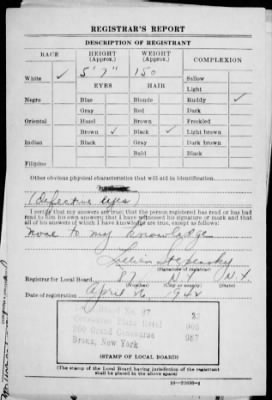 REGISTRAR'S REPORT
DESCRIPTION OF REGISTRANT
RACE HEIGHT (Approx.) WEIGHT (Approx.) COMPLEXION
White ✓ 5' 7" 150 Sallow
Light
EYES HAIR
Negro Blue Blonde Ruddy ✓
Gray Red Dark
Oriental Hazel Brown Freckled
Brown ✓ Black ✓ Light brown
Indian Black Gray Dark brown
Bald Black
Filipino
Other obvious physical characteristics that will aid in identification.
(defective eyes)
I certify that my answers are true; that the person registered has read or has had
read to him his own answers; that I have witnessed his signature or mark and that
all of his answers of which I have knowledge are true, except as follows:
None to my knowledge
Lillian
(Signature of registrar)
Registrar for Local Board 87 N.Y. N.Y.
(Number) (City or county) (State)
Date of registration April 26 1942
Local Board No. 87
Concourse Plaza Hotel
900 Grand Concourse
Bronx, New York
(STAMP OF LOCAL BOARD)
(The stamp of the Local Board having jurisdiction of the registrant
shall be placed in the above space)